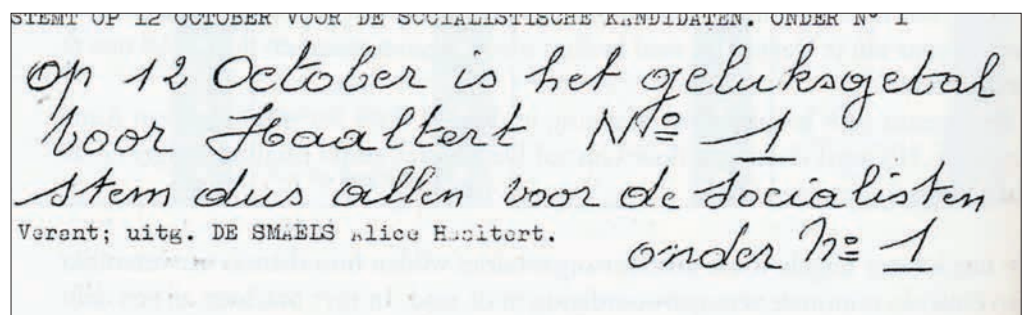 STEMT OP 12 OCTOBER VOOR DE SOCIALISTISCHE KANDIDATEN. ONDER Nº 1
op 12 October is het geluksgetal
voor Haaltert Nº 1
stem dus allen voor de socialisten
Verant; uitg. DE SMAELS Alice Haaltert.
onder nº 1